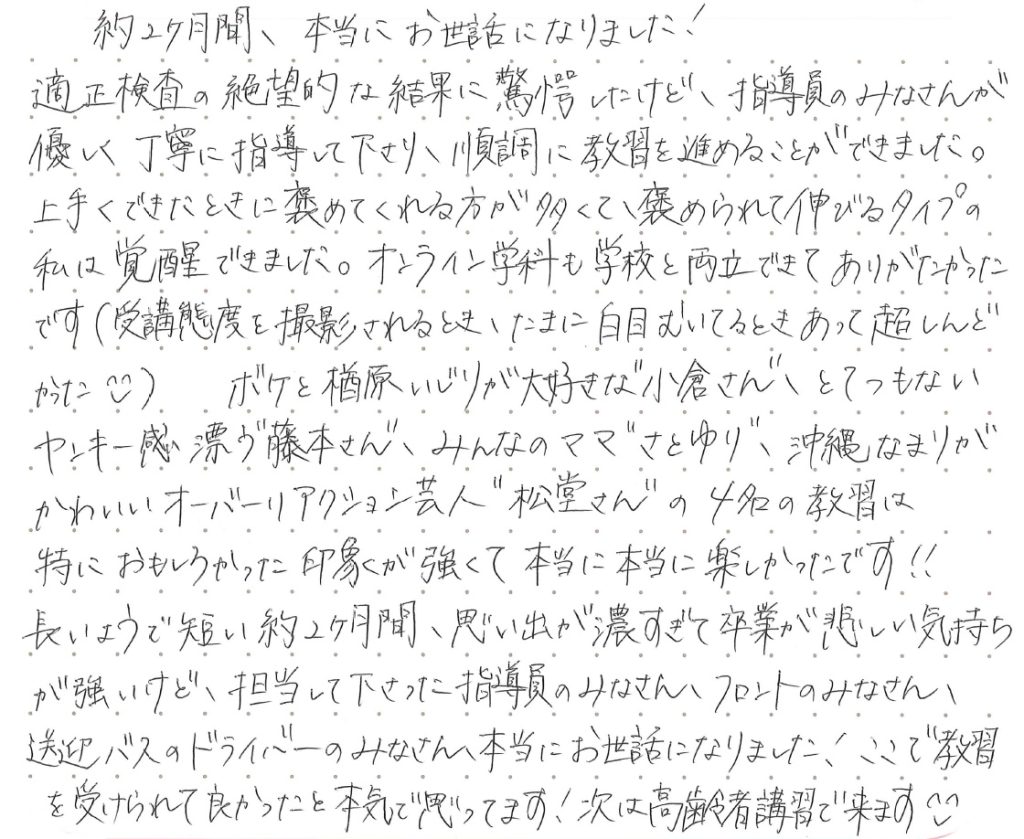 約2ヶ月間、本当にお世話になりました!
適正検査の絶望的な結果に驚愕したけど、指導員のみなさんが
優しく丁寧に指導して下さり、順調に教習を進めることができました。
上手くできたときに褒めてくれる方が多くて、褒められて伸びるタイプの
私は覚醒できました。オンライン学科も学校と両立できてありがたかった
です(受講態度を撮影されるとき、たまに白目むいてるときあって超しんど
かった)  ボケと楢原いじりが大好きな"小倉さん"、とてつもない
ヤンキー感漂う"藤本さん"、みんなのママ"さとゆり"、沖縄なまりが
かわいいオーバーリアクション芸人"松堂さん"の4名の教習は
特におもしろかった印象が強くて本当に本当に楽しかったです!!
長いようで短い約2ヶ月間、思い出が濃すぎて卒業が悲しい気持ち
が強いけど、担当して下さった指導員のみなさん、フロントのみなさん、
送迎バスのドライバーのみなさん、本当にお世話になりました!ここで教習
を受けられて良かったと本気で思ってます!次は高齢者講習で来ます